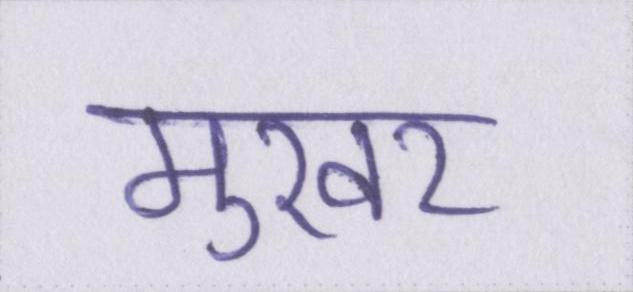 मुखर